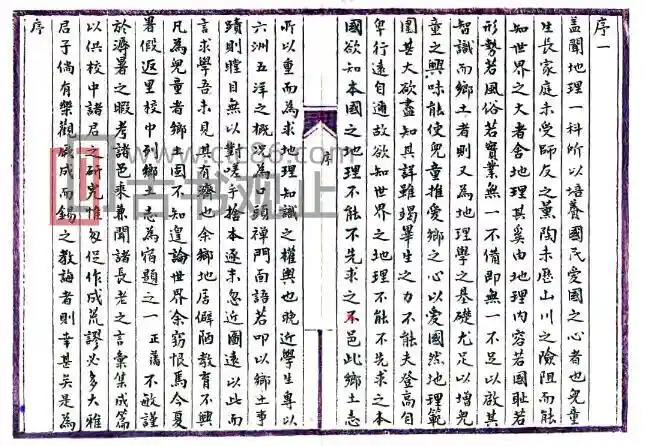 序一
蓋聞地理一科所以培養國民愛國之心者也兒童
生長家庭未受師友之薰陶未歷山川之險阻而能
知世界之大者舍地理其奚由地理內容若國恥若
形勢若風俗若實業無一不備即無一不足以啟其
智識而鄉土者則又為地理學之基礎尤足以增兒
童之興味能使兒童推愛鄉之心以愛國然地理範
圍甚大欲盡知其詳雖竭畢生之力不能夫登高自
卑行遠自邇故欲知世界之地理不能不先求之本
國欲知本國之地理不能不先求之本邑此鄉土志
序
所以重而為求地理知識之權輿也晚近學生專以
六洲五洋之概況為口頭禪門面語若叩以鄉土事
蹟則瞠目無以對嗟乎捨本逐末忽近圖遠以此而
言求學吾未見其有濟也余鄉地居僻陋教育不興
凡為兒童者鄉土固不知遑論世界余竊恨焉今夏
暑假返里校中列鄉土志為宿題之一正藹不敏謹
於溽暑之暇考諸邑乘兼聞諸長老之言彙集成篇
以供校中諸君之研究惟匆促作成荒謬必多大雅
君子倘有樂觀厥成而錫之教誨者則幸甚矣是為
序
古书观止